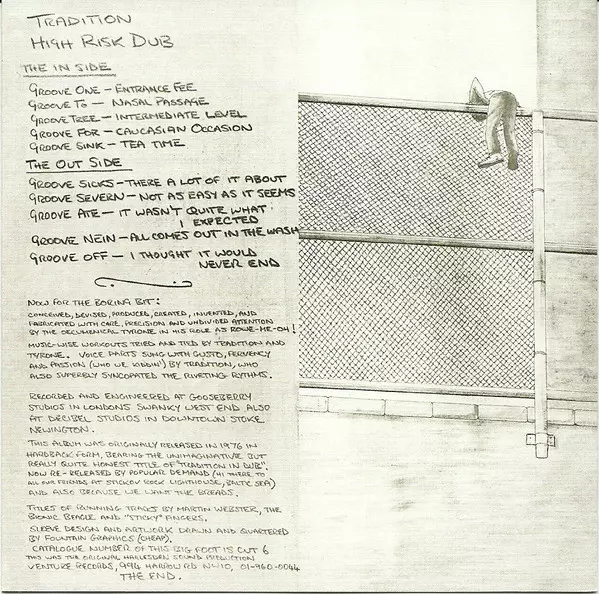 TRADITION
HIGH RISK DUB
THE IN SIDE
GROOVE ONE – ENTRANCE FEE
GROOVE TO – NASAL PASSAGE
GROOVE TREE – INTERMEDIATE LEVEL
GROOVE FOR – CAUCASIAN OCCASION
GROOVE SINK – TEA TIME
THE OUT SIDE
GROOVE SICKS – THERE A LOT OF IT ABOUT
GROOVE SEVERN – NOT AS EASY AS IT SEEMS
GROOVE ATE – IT WASN'T QUITE WHAT
I EXPECTED
GROOVE NEIN – ALL COMES OUT IN THE WASH
GROOVE OFF – I THOUGHT IT WOULD
NEVER END
NOW FOR THE BORING BIT:
CONCEIVED, DEVISED, PRODUCED, CREATED, INVENTED, AND
FABRICATED WITH CARE, PRECISION AND UNDIVIDED ATTENTION
BY THE OECUMENICAL TYRONE IN HIS ROLE AS ROWE-ME-OH!
MUSIC-WISE WORKOUTS TRIED AND TIED BY TRADITION AND
TYRONE. VOICE PARTS SUNG WITH GUSTO, FERVENCY
AND PASSION (WHO WE KIDDIN') BY TRADITION, WHO
ALSO SUPERBLY SYNCOPATED THE RIVETING RYTHMS.
RECORDED AND ENGINEERED AT GOOSEBERRY
STUDIOS IN LONDONS SWANKY WEST END ALSO
AT DECIBEL STUDIOS IN DOWNTOWN STOKE
NEWINGTON.
THIS ALBUM WAS ORIGINALLY RELEASED IN 1976 IN
HARDBACK FORM, BEARING THE UNIMAGINATIVE BUT
REALLY QUITE HONEST TITLE OF "TRADITION IN DUB".
NOW RE-RELEASED BY POPULAR DEMAND (HI THERE TO
ALL OUR FRIENDS AT STICKOV ROCK LIGHTHOUSE, BALTIC SEA)
AND ALSO BECAUSE WE WANT THE BREADS.
TITLES OF RUNNING TRACKS BY MARTIN WEBSTER, THE
BIONIC BEAGLE AND "STICKY" FINGERS,
SLEEVE DESIGN AND ARTWORK DRAWN AND QUARTERED
BY FOUNTAIN GRAPHICS (CHEAP).
CATALOGUE NUMBER OF THIS BIG FOOT IS CUT 6
THIS WAS THE ORIGINAL HARLESDEN SOUND PRODUCTION
VENTURE RECORDS, 994 HARROW RD NW10, 01-960-0044
THE END.